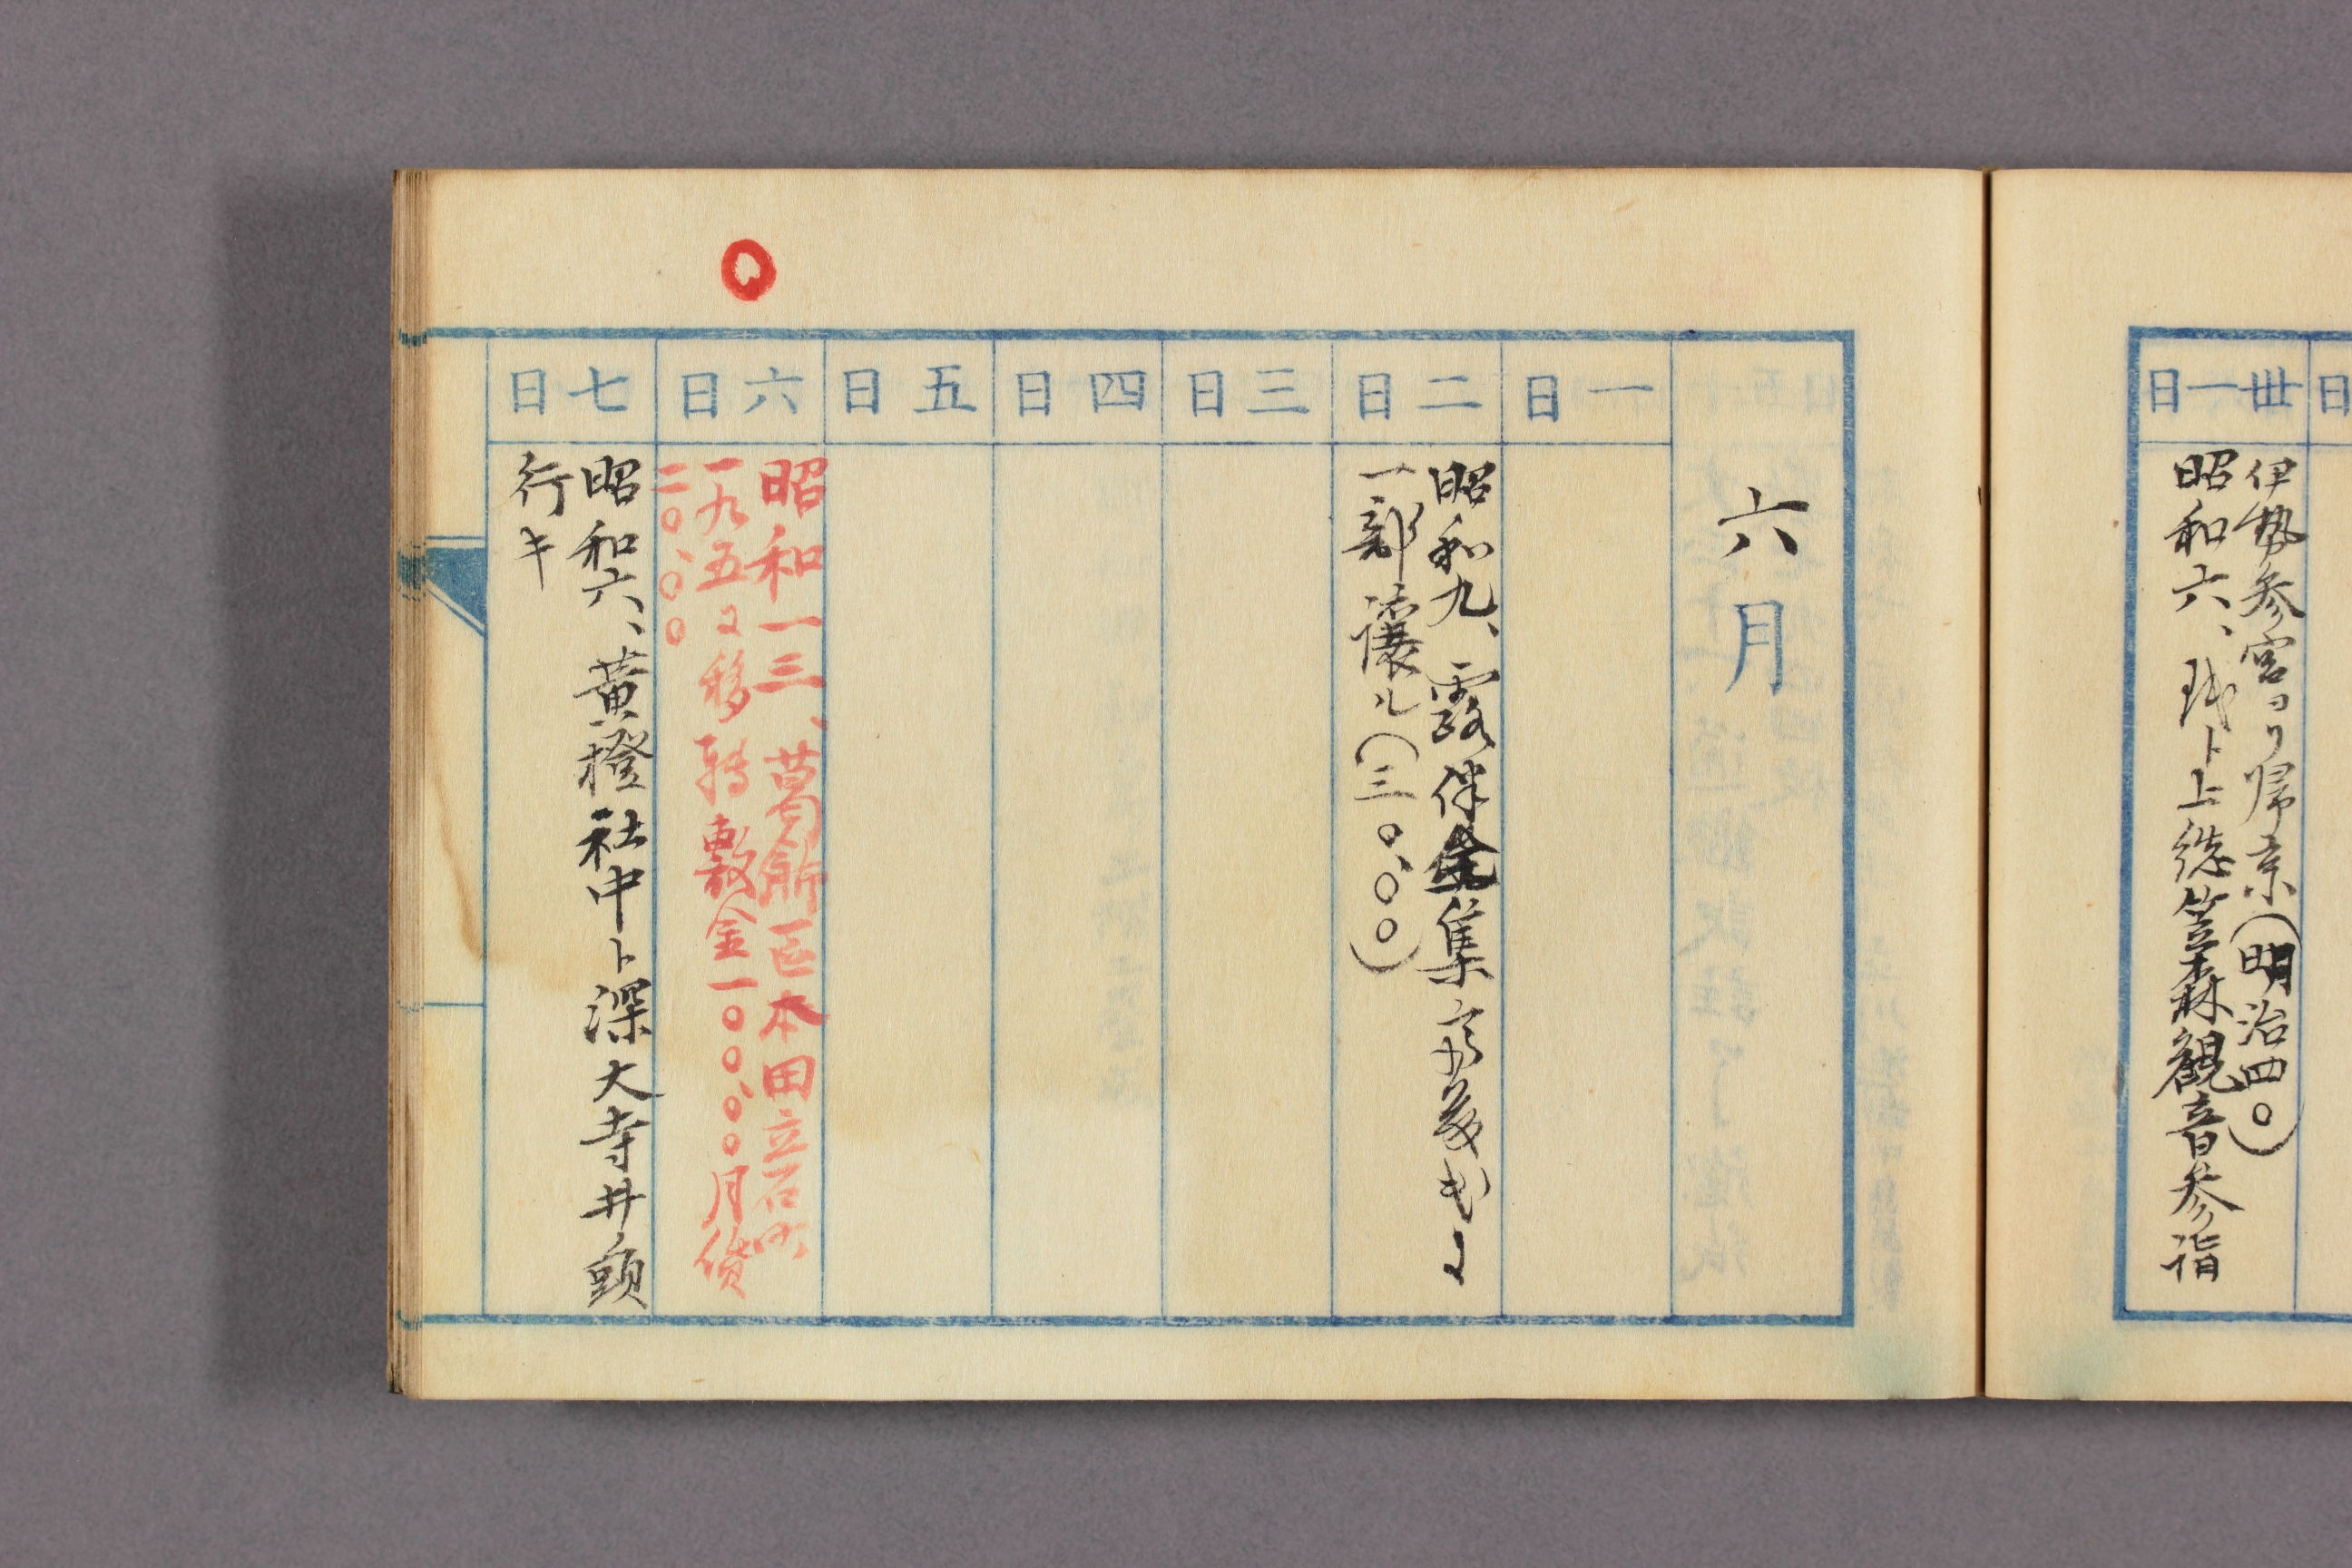 日
卅一日
伊勢参宮ヨリ帰京(明治四〇)
昭和六、 ト上総笠森観音参詣
六月
一日
二日
昭和九、露伴全集
一部譲ル(三〇、〇〇)
三日
四日
五日
六日
昭和一三、葛飾区本田立石町
一九五ニ移転敷金一〇〇、〇〇月賃
二〇、〇〇
七日
昭和六、黄橙社中ト深大寺井ノ頭
行キ